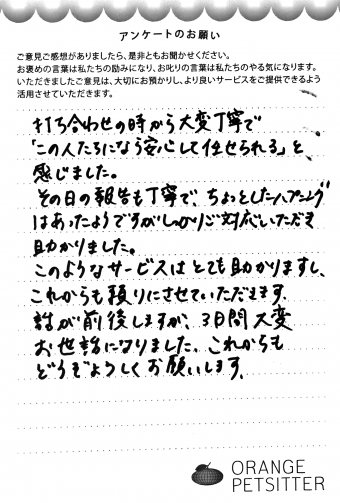 アンケートのお願い
ご意見ご感想がありましたら、是非ともお聞かせください。
お褒めの言葉は私たちの励みになり、お叱りの言葉は私たちのやる気になります。
いただきましたご意見は、大切にお預かりし、より良いサービスをご提供できるよう
活用させていただきます。
打ち合わせの時から大変丁寧で
「この人たちになら安心して任せられる」と
感じました。
その日の報告も丁寧で、ちょっとしたハプニング
はあったようですがしっかりご対応いただき
助かりました。
このようなサービスはとても助かりますし、
これからも頼りにさせていただきます。
話が前後しますが、3日間大変
お世話になりました。これからも
どうぞよろしくお願いします。
ORANGE
PETSITTER